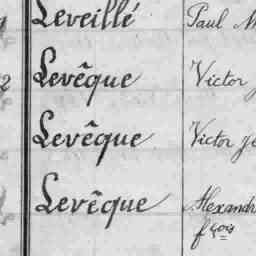 Leveillé Paul M
2 Levêque Victor J
Levêque Victor Je
Levêque Alexandr
fçois